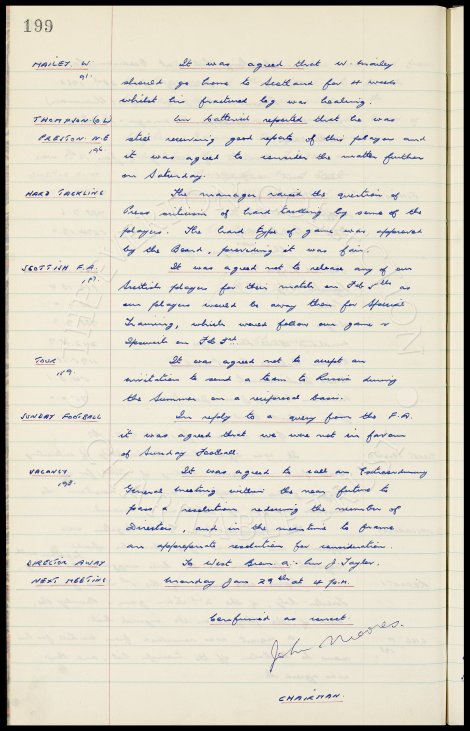 199
MAILEY. W. It was agreed that W. Mailey
91. should go home to Scotland for 4 weeks
whilst his fractured leg was healing.
THOMPSON (G.W) Mr Catterick reported that he was
PRESTON. N.E still receiving good reports of this player and
194 it was agreed to consider the matter further
on Saturday.
HARD TACKLING The manager raised the question of
Press criticism of hard tackling by some of the
players. The hard type of game was approved
by the Board, providing it was fair.
SCOTTISH F.A. It was agreed not to release any of our
Scottish players for their match on Feb 5th as
our players would be away then for Special
Training, which would follow our game v
Ipswich on Feb 3rd.
TOUR It was agreed not to accept an
189. invitation to send a team to Russia during
the Summer on a reciprocal basis.
SUNDAY FOOTBALL In reply to a query from the F.A.
it was agreed that we were not in favour
of Sunday Football
VACANCY It was agreed to call an Extraordinary
198. General meeting within the near future to
pass a resolution reducing the number of
Directors, and in the meantime to frame
an appropriate resolution for consideration.
DIRECTOR AWAY To West Brom. A:- Mr J. Taylor.
NEXT MEETING Monday Jan 29th at 4 p.m.
Confirmed as correct
John Moores.
CHAIRMAN.